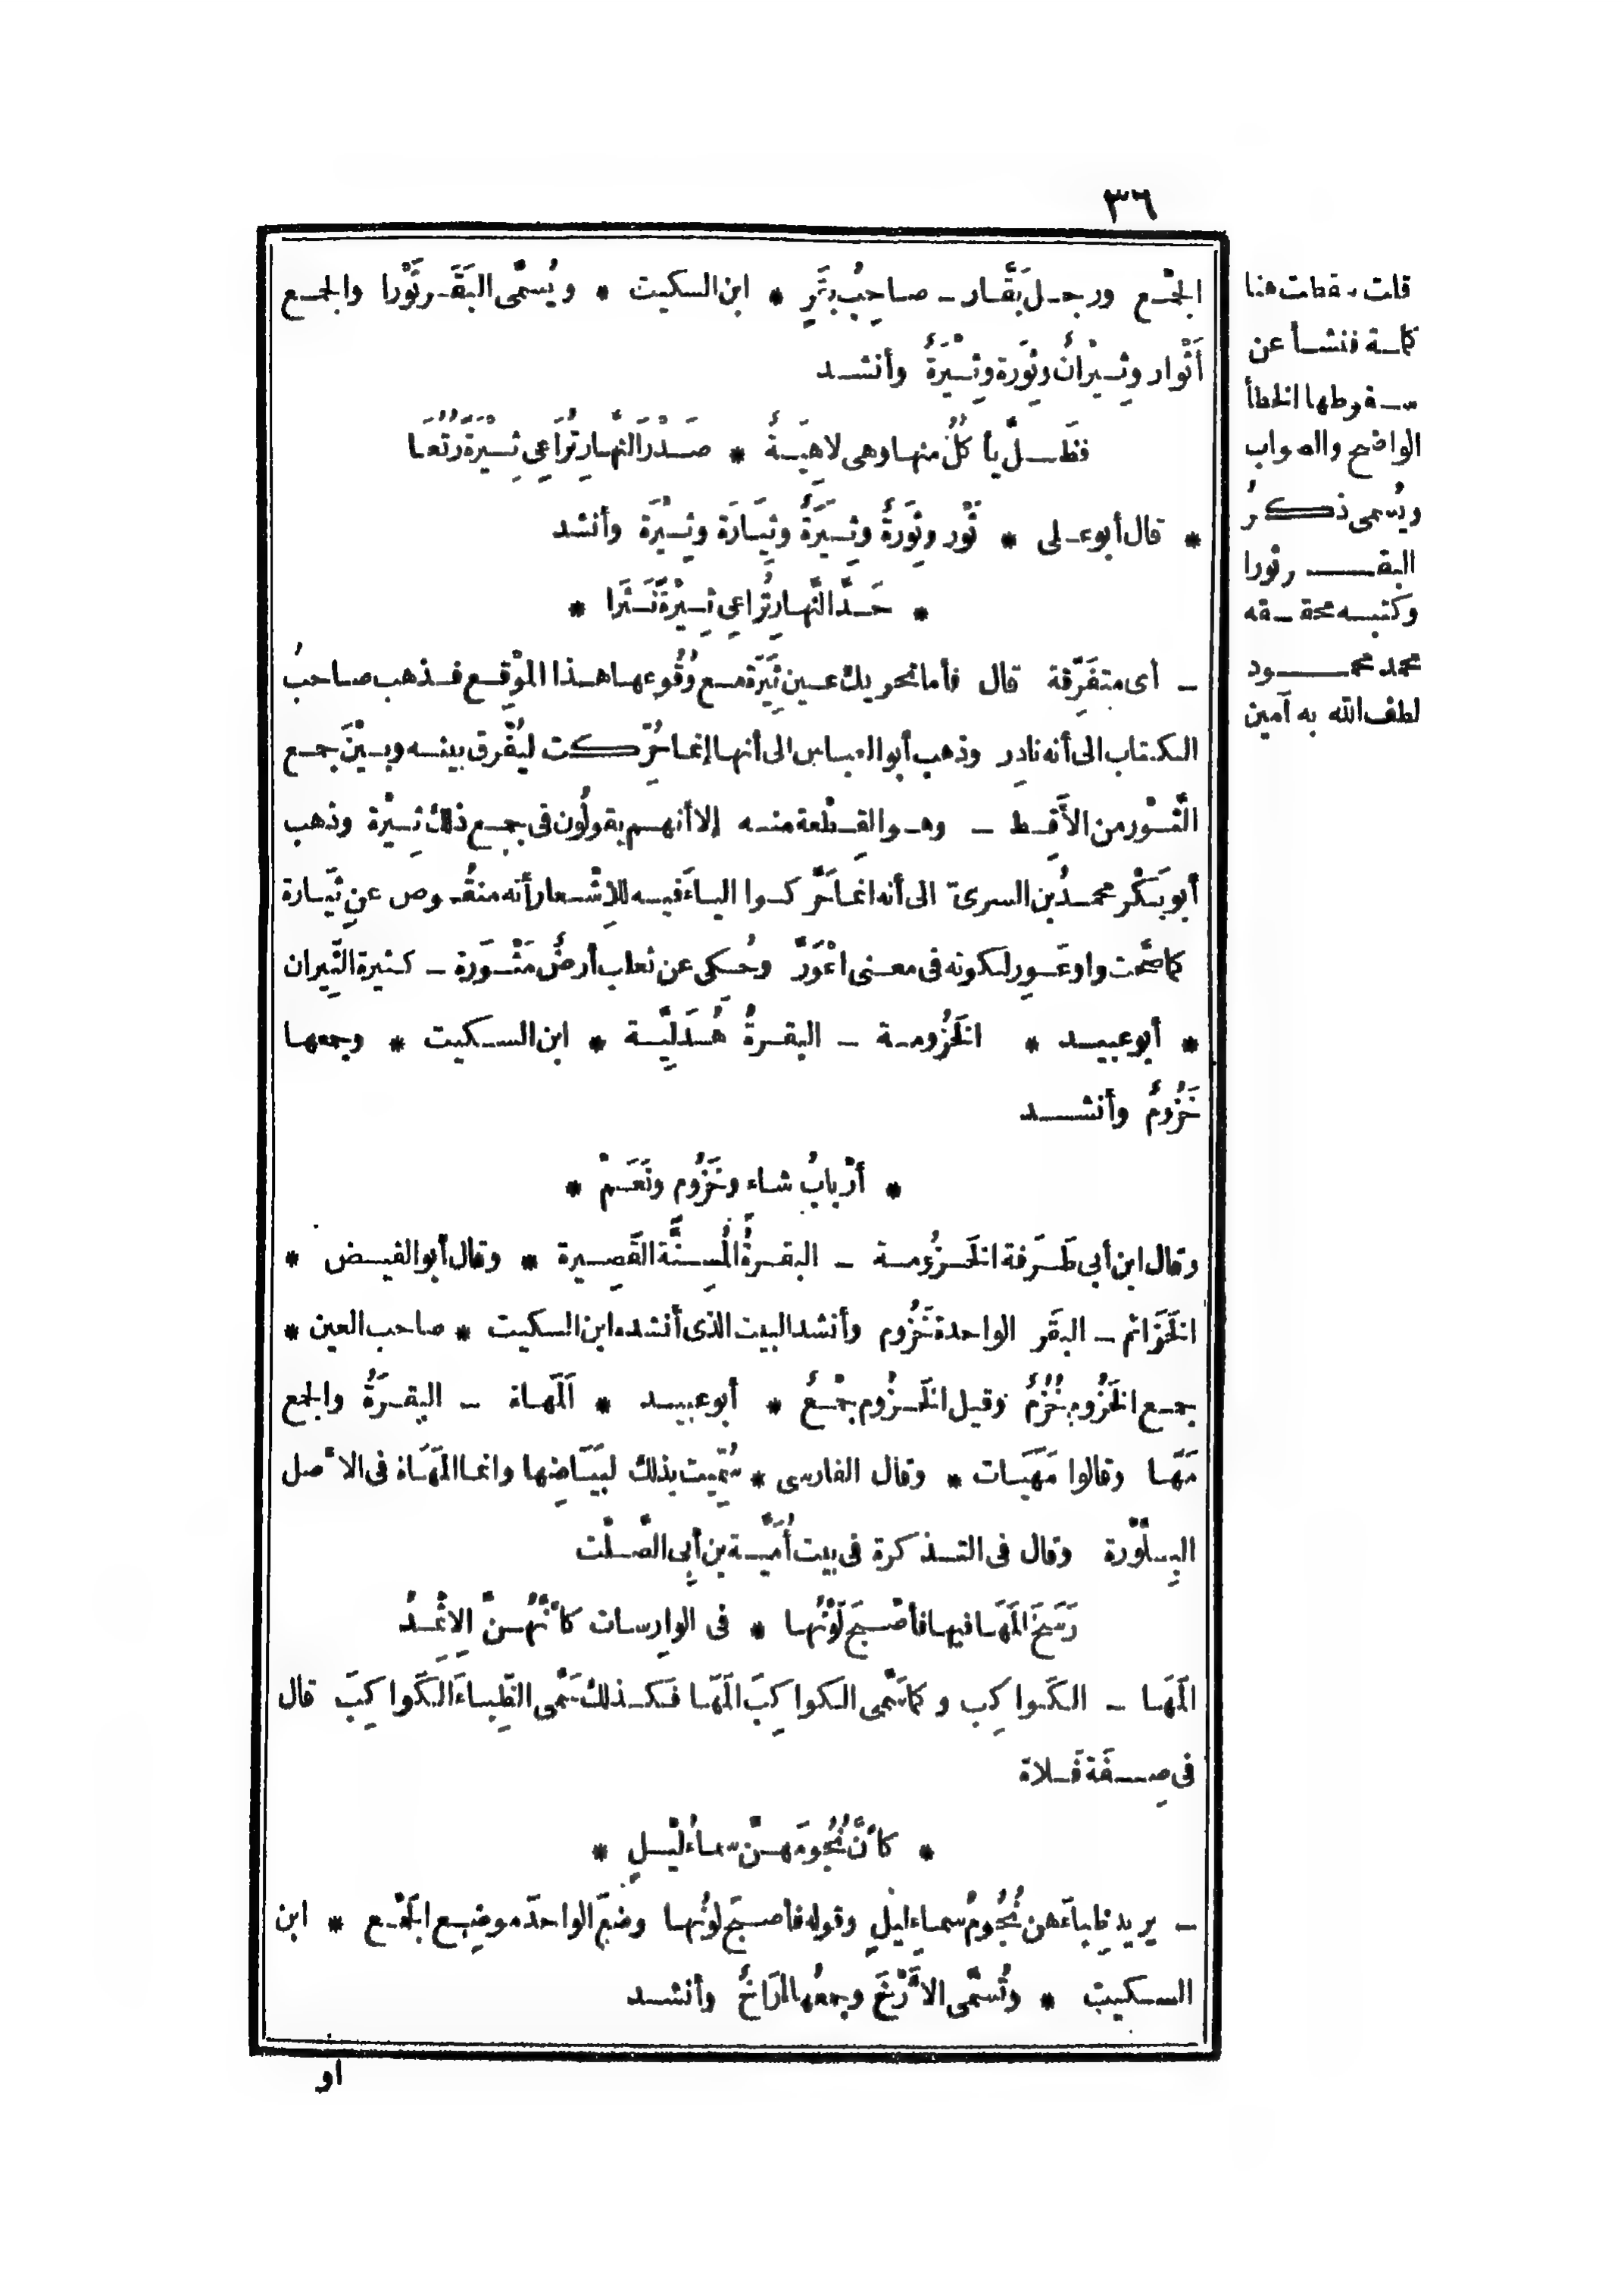 ٣٦
الجَمْع ورجل بَقَّار - صاحِبُ بَقَرٍ * ابن السكيت * ويُسَمَّى البَقَر ثَوْرا والجمع
أَثْوار وثِيرْانٌ وثِوَرة وثِيْرَةٌ وأنشد
فظَلَّ يأكُلُ منها وهى لاهِيَةٌ * صَدْرَ النَّهارِ تُرَاعِى ثِيْرَةً رُتُعَا
* قال أبو على * ثَوْر وثِوَرةٌ وثِيَرَةٌ وثِيَارَة وثِيْرَة وأنشد
* حَدَّ النَّهارِ تُرَاعِى ثِيْرَةً نَثَرَا *
- أى متفَرِّقة قال فأما تحريك عين ثِيَرَة مع وُقُوعها هذا المَوْقِع فذهب صاحبُ
الكتاب الى أنه نادِر وذهب أبو العباس الى أنها إنما حُرِّكت ليُفْرَق بينه وبَيْنَ جمع
الثَّوْر من الأَقِط - وهو القِطْعة منه إلا أنهم يقولُون فى جمع ذلك ثِيْرة وذهب
أبو بَكْر محمدُ بن السرىّ الى أنه انما حَرَّكوا الياءَ فيه للإشْعار أنه منقُوص عن ثِيَارة
كما صَحَّت واو عَوِر لكونه فى معنى اعْوَرَّ وحُكى عن ثعلب أرضٌ مَثْوَرة - كثيرة الثِّيران
* أبو عبيد * الخَزُومة - البقرةُ هُذَلِيَّة * ابن السكيت * وجمعها
خَزُومٌ وأنشد
* أرْبابُ شاء وخَزُوم ونَعَمْ *
وقال ابن أبى طَرَفة الخَزُومة - البقرةُ المُسِنَّة القَصِيرة * وقال أبو الفيض *
الخَزَائم - البقَر الواحدة خَزُوم وأنشد البيت الذى أنشده ابن السكيت * صاحب العين *
جمع الخَزُوم خُزُمٌ وقيل الخَزُوم جمْعٌ * أبو عبيد * المَهاة - البقرَةُ والجمع
مَهًا وقالوا مَهَيَات * وقال الفارسى * سُمِّيت بذلك لبَيَاضِها وانما المَهَاة فى الأصل
البِلَّوْرة وقال فى التذكرة فى بيت أُمَيَّة بن أبى الصَّلْت
رَسَخَ المَهَا فيها فأصْبَحَ لَوْنُها * فى الوارِسات كأَنَّهُنَّ الإثْمِدُ
المَهَا - الكَواكِب وكما سَمَّى الكواكِبَ المَهَا فكذلك سَمَّى الظِّباءَ الكَواكِبَ قال
فى صِفَة فَلاة
* كأَنَّ نُجُومَهنَّ سماءُ لَيْلٍ *
- يريد ظِباءَ هن نُجُومُ سماءِ ليلٍ وقوله فأصبحَ لوْنُها وضَعَ الواحدَ موضِع الجَمْع * ابن
السكيت * وتُسَمَّى الأَرْخَ وجمعُها إرَاخٌ وأنشد
او
قلت سقطت هنا
كلمة فنشأ عن
سقوطها الخطأ
الواضح والصواب
ويُسمى ذَكَرُ
البقر ثورا
وكتبه محققه
محمد محمود
لطف الله به آمين